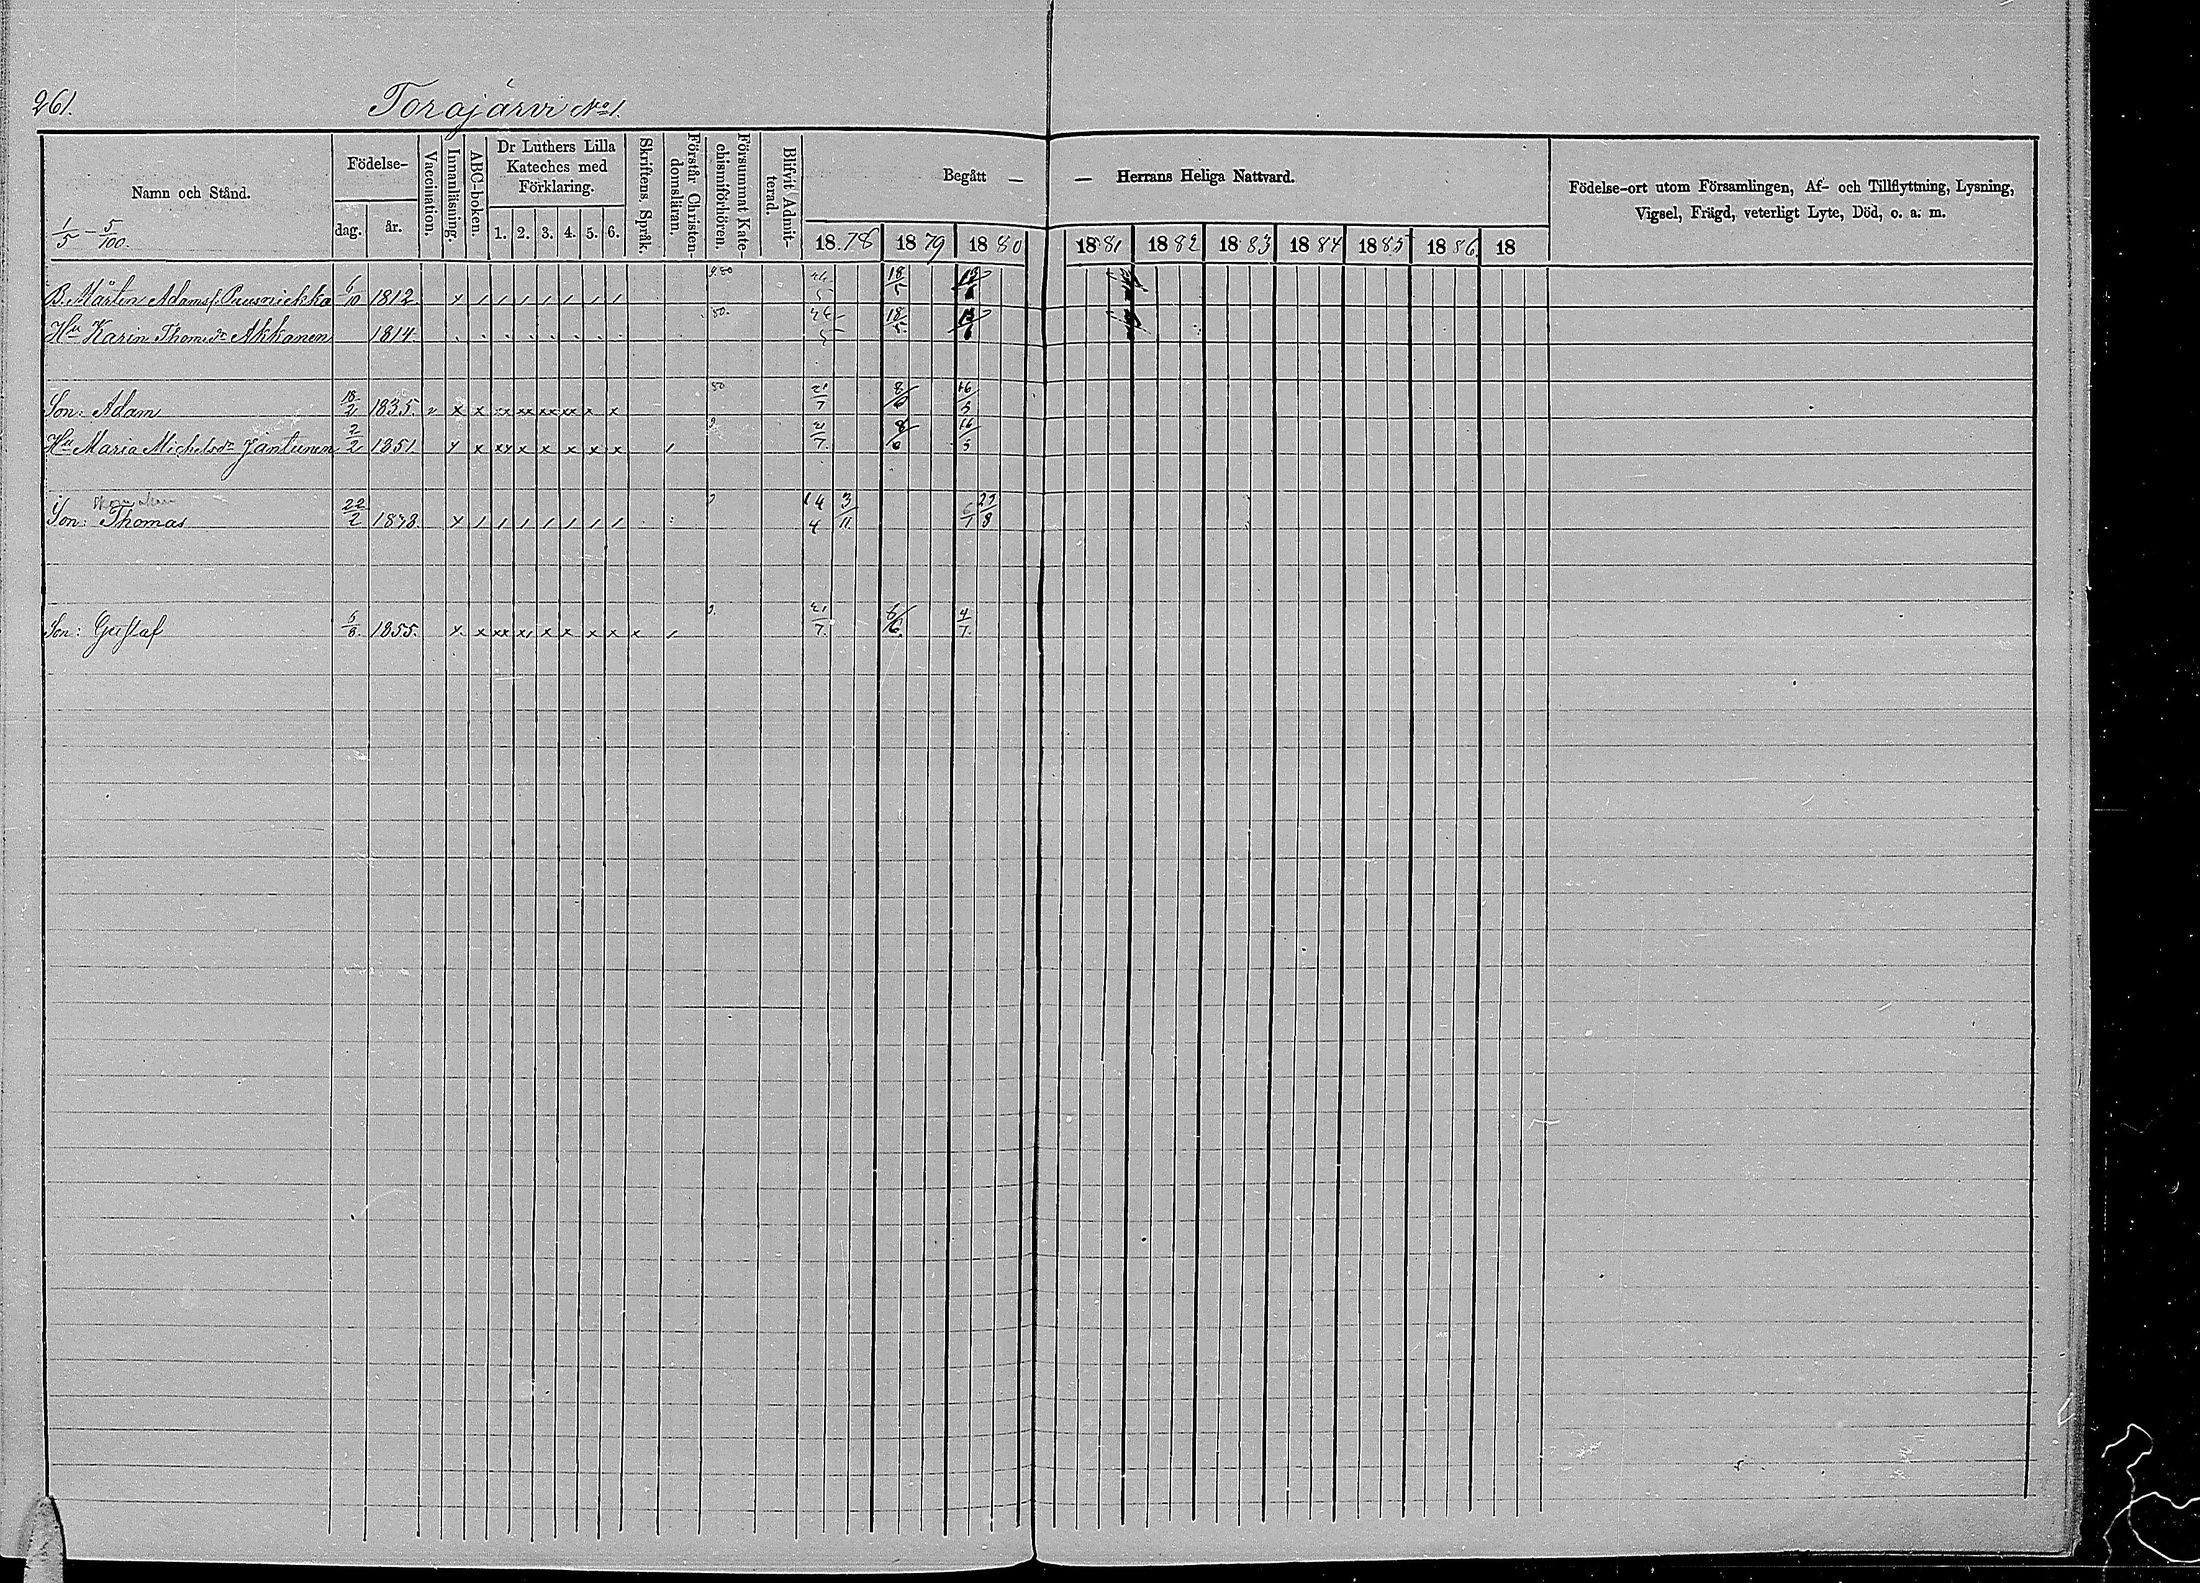 261.
Torajärvi No 1.
Namn och Stånd.
1/5 – 5/100.
Födelse-
dag.
år.
Vaccination.
Innanläsning.
ABC-boken.
Dr Luthers Lilla
Kateches med
Förklaring.
1. 2. 3. 4. 5. 6.
Skriftens Språk.
Förstår Christen-
domsläran.
Försummat Kate-
chismiförhören.
Blifvit Admit-
terad.
Begått — — Herrans Heliga Nattvard.
1878 1879 1880 1881 1882 1883 1884 1885 1886 18
Födelse-ort utom Församlingen, Af- och Tillflyttning, Lysning,
Vigsel, Frägd, veterligt Lyte, Död, o. a. m.
B. Mårten Adamsf. 6/10 1812 x / / / / / / / 18/5
Hu Karin Thomsdr Akkanen 1814 50. 18/5
Son: Adam 18/2 1835. v x x xx xx xx xx x x 50 21/7 8/6 16/5
Hu Maria Michelsdr Jantunen 2/2 1851. x x xx x x x x x / 21/7. 8/6 16/5
Son: Thomas 22/2 1848 x / / / / / / / 14/4 3/11 6/7 29/8
Son: Gustaf 5/8 1855. x x xx x/ x x x x x / 21/7. 8/6. 4/7.